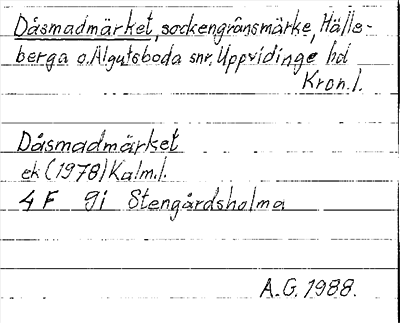 Dåsmadmärket, sockengränsmärke, Hälle-
berga o. Algutsboda snr, Uppvidinge hd
Kron.l.
Dåsmadmärket
ek (1978) Kalm.l.
4F 9i Stengårdsholma
A.G. 1988.